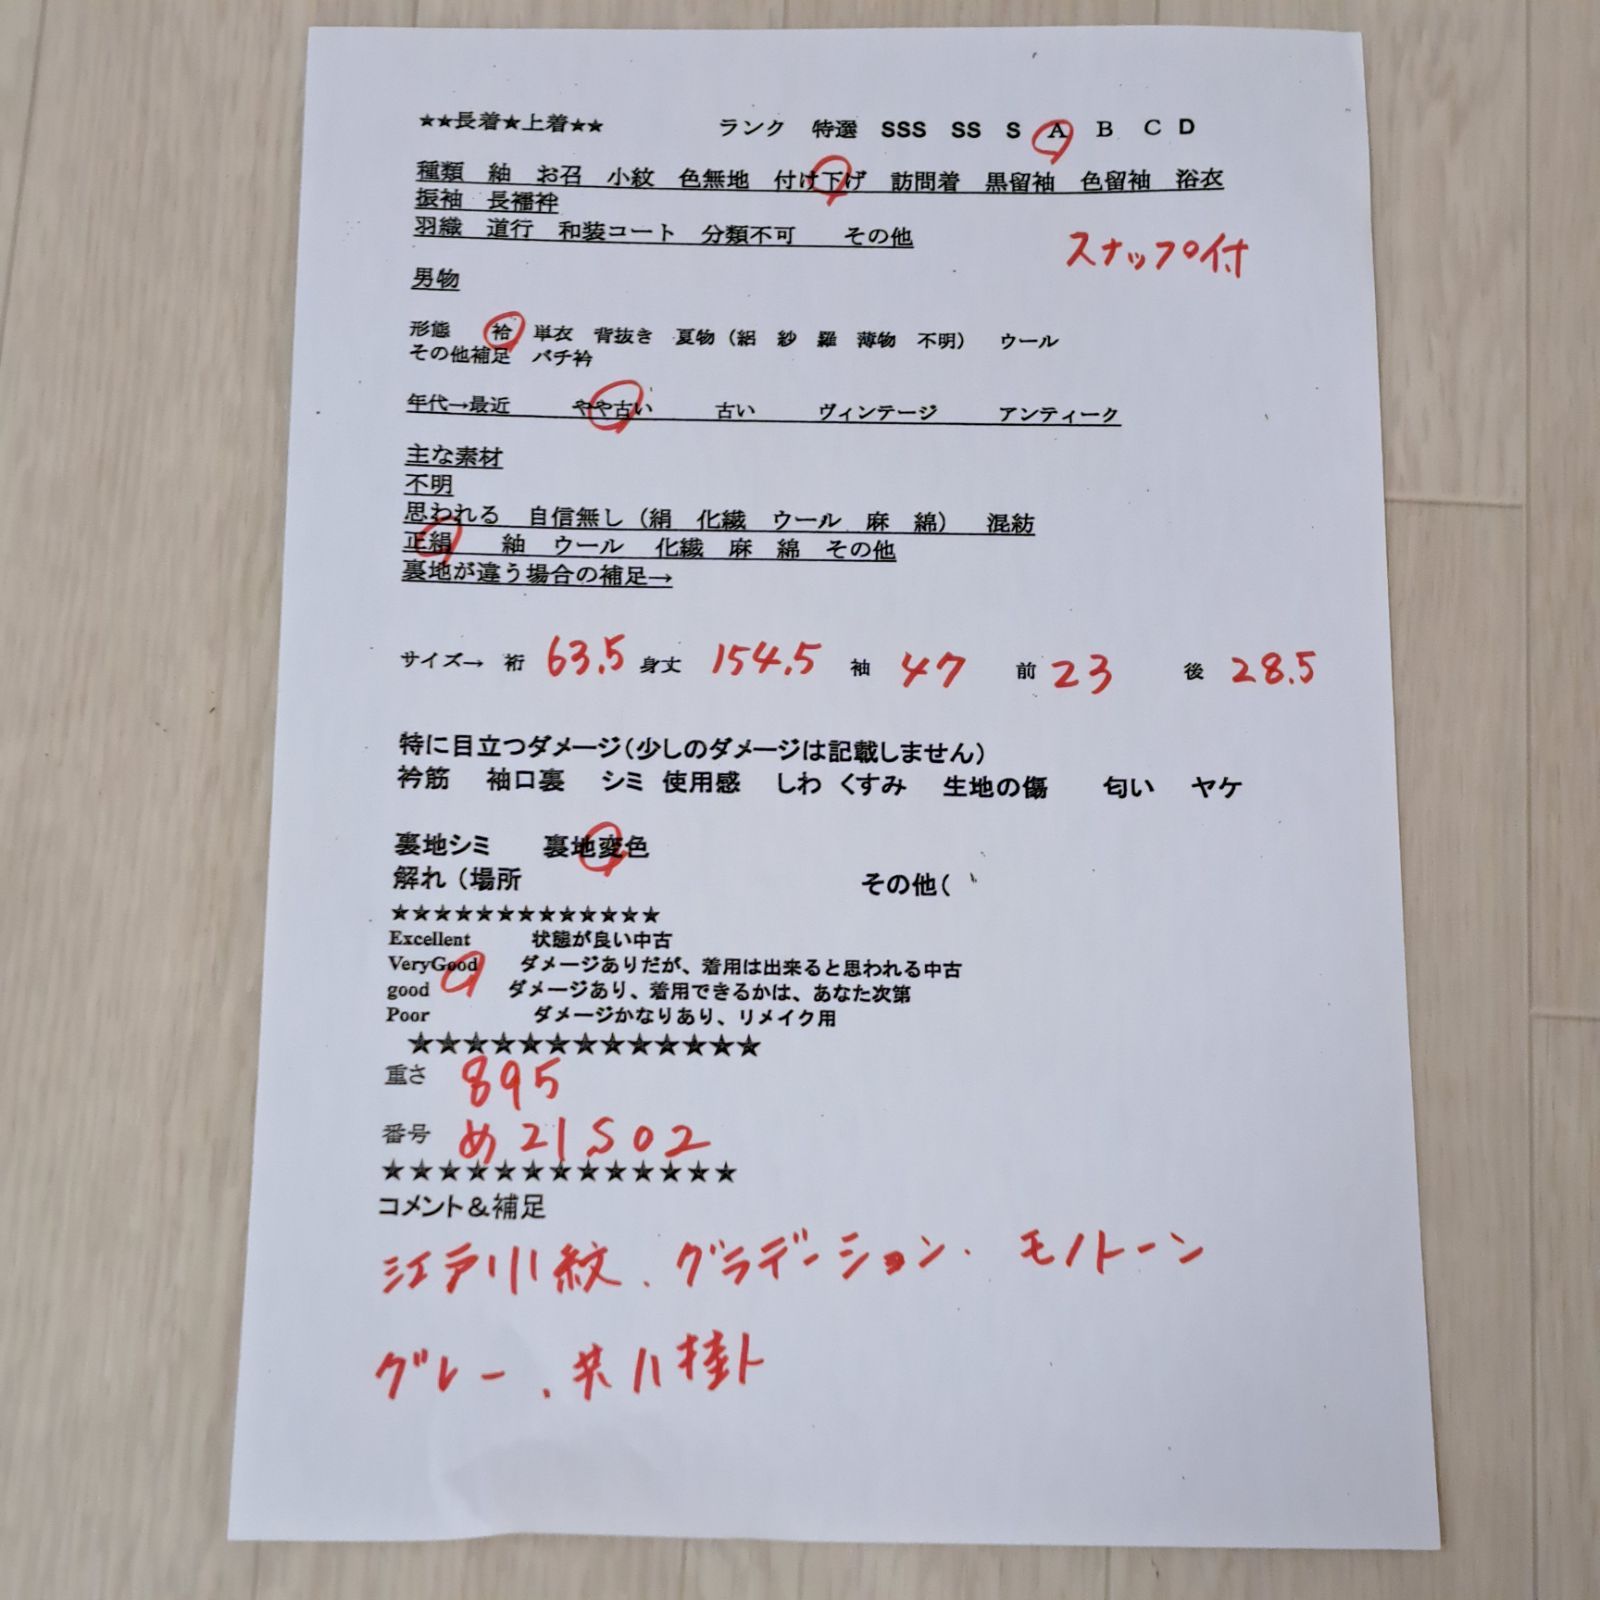 ★★長着★上着★★ ランク 特選 SSS SS S A B C D
種類 紬 お召 小紋 色無地 付け下げ 訪問着 黒留袖 色留袖 浴衣
振袖 長襦袢
羽織 道行 和装コート 分類不可 その他
スナップ付
男物
形態 袷 単衣 背抜き 夏物（絽 紗 羅 薄物 不明） ウール
その他補足 バチ衿
年代→最近 やや古い 古い ヴィンテージ アンティーク
主な素材
不明
思われる 自信無し（絹 化繊 ウール 麻 綿） 混紡
正絹 紬 ウール 化繊 麻 綿 その他
裏地が違う場合の補足→
サイズ→ 裄 63.5 身丈 154.5 袖 47 前 23 後 28.5
特に目立つダメージ（少しのダメージは記載しません）
衿筋 袖口裏 シミ 使用感 しわ くすみ 生地の傷 匂い ヤケ
裏地シミ 裏地変色
解れ（場所 その他（
★★★★★★★★★★★★★
Excellent 状態が良い中古
VeryGood ダメージありだが、着用は出来ると思われる中古
good ダメージあり、着用できるかは、あなた次第
Poor ダメージかなりあり、リメイク用
★★★★★★★★★★★★★
重さ 895
番号 め21S02
★★★★★★★★★★★★★
コメント＆補足
江戸小紋、グラデーション、モノトーン
グレー、共八掛